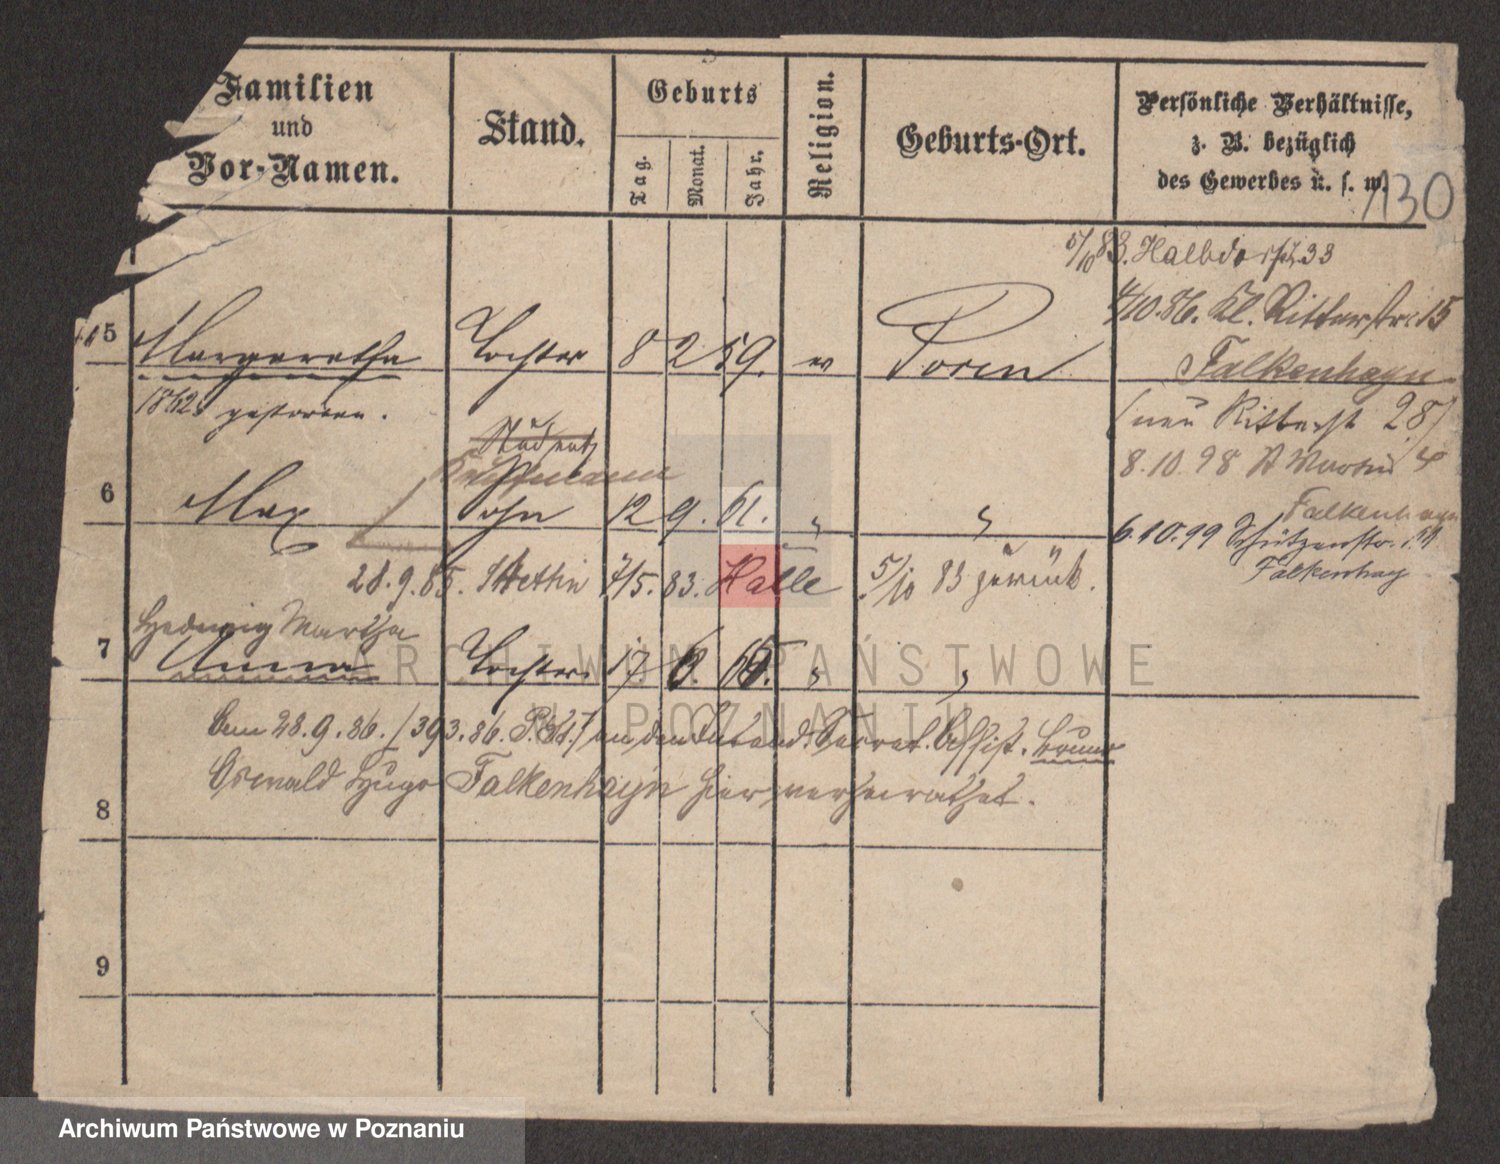 Familien
und
Vor-Namen.
Stand.
Geburts
Tag.
Monat.
Jahr.
Religion.
Geburts-Ort.
Persönliche Verhältnisse,
z. B. bezüglich
des Gewerbes u. s. w.
130
5/10 83. Halbdorfstr 33
4/10. 86. Kl. Ritterstr. 15
Falkenhayn
5 Margaretha Tochter 8 2 59. ev Posen
1862 gestorben.
(neu Ritterst 28)
8.10.98 St Martin 4
Falkenhayn
Student
Kaufmann
6 Max Sohn 12 9. 61. " "
6.10.99 Schützenstr. 19
Falkenhay
28.9.85. Stettin 7/5. 83. Halle 5/10 83 zurück.
Hedwig Martha
7 Anna Tochter 17 6 65. " "
ARCHIWUM PAŃSTWOWE
W POZNANIU
Am 28.9.86. (393.86. P. St.) an den Intend. Secret. Assist. Bruno
Oswald Hugo Falkenhayn hier verheirathet.
8
9
Archiwum Państwowe w Poznaniu